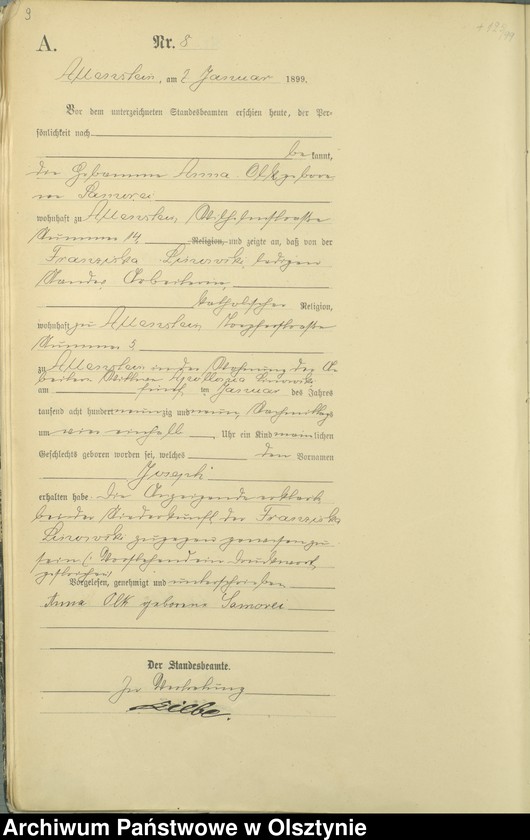 9
+ 12/5 99
A. Nr. 8
Allenstein, am 7 Januar 1899.
Vor dem unterzeichneten Standesbeamten erschien heute, der Per-
sönlichkeit nach
be kannt,
die Hebamme Anna Olk gebore
ne Samorei
wohnhaft zu Allenstein, Wilhelmstrasse
Nummer 14
Religion, und zeigte an, daß von der
Franziska Linowski, ledigen
Standes, Arbeiterin,
katholischer Religion,
wohnhaft zu Allenstein
Nummer 3
zu Allenstein in der Wohnung der Ar
beiter Wittwe Apollonia Linowski
am fünften Januar des Jahres
tausend acht hundert neunzig und neun, Nachmittags
um ein halb Uhr ein Kind männlichen
Geschlechts geboren worden sei, welches den Vornamen
Joseph
erhalten habe. Die Anzeigende erklärte,
bei der Niederkunft der Franziska
Linowski zugegen gewesen zu
sein (: Vorstehend ein Druckwort
gestrichen
Vorgelesen, genehmigt und unterschrieben
Anna Olk geborene Samorei
Der Standesbeamte.
In Vertretung
Archiwum Państwowe w Olsztynie